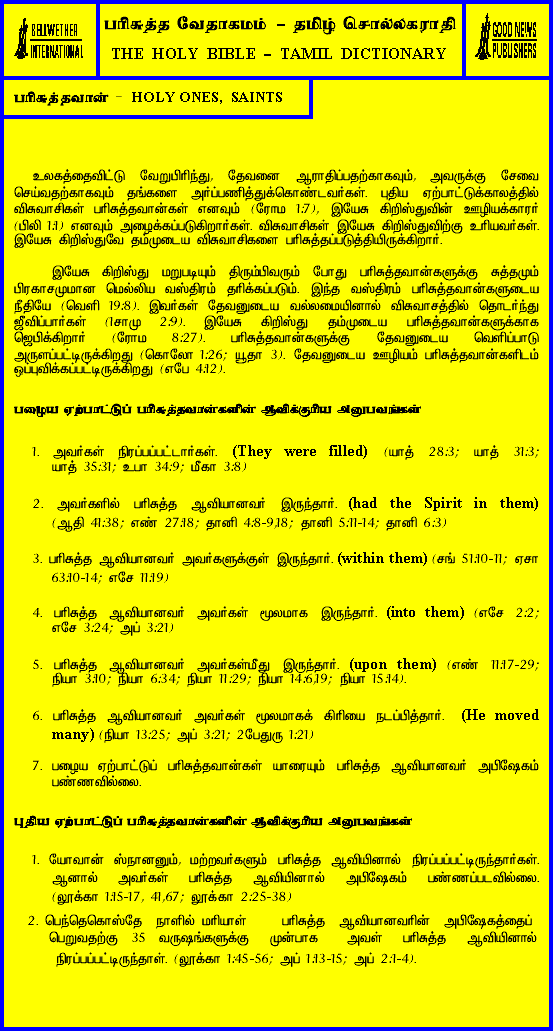 BELLWETHER
INTERNATIONAL
பரிசுத்த வேதாகமம் – தமிழ் சொல்லகராதி
THE HOLY BIBLE – TAMIL DICTIONARY
GOOD NEWS
PUBLISHERS
பரிசுத்தவான் – HOLY ONES, SAINTS
உலகத்தைவிட்டு வேறுபிரிந்து, தேவனை ஆராதிப்பதற்காகவும், அவருக்கு சேவை
செய்வதற்காகவும் தங்களை அர்ப்பணித்துக்கொண்டவர்கள். புதிய ஏற்பாட்டுக்காலத்தில்
விசுவாசிகள் பரிசுத்தவான்கள் எனவும் (ரோம 1:7), இயேசு கிறிஸ்துவின் ஊழியக்காரர்
(பிலி 1:1) எனவும் அழைக்கப்படுகிறார்கள். விசுவாசிகள் இயேசு கிறிஸ்துவிற்கு உரியவர்கள்.
இயேசு கிறிஸ்துவே தம்முடைய விசுவாசிகளை பரிசுத்தப்படுத்தியிருக்கிறார்.
இயேசு கிறிஸ்து மறுபடியும் திரும்பிவரும் போது பரிசுத்தவான்களுக்கு சுத்தமும்
பிரகாசமுமான மெல்லிய வஸ்திரம் தரிக்கப்படும். இந்த வஸ்திரம் பரிசுத்தவான்களுடைய
நீதியே (வெளி 19:8). இவர்கள் தேவனுடைய வல்லமையினால் விசுவாசத்தில் தொடர்ந்து
ஜீவிப்பார்கள் (1சாமு 2:9). இயேசு கிறிஸ்து தம்முடைய பரிசுத்தவான்களுக்காக
ஜெபிக்கிறார் (ரோம 8:27). பரிசுத்தவான்களுக்கு தேவனுடைய வெளிப்பாடு
அருளப்பட்டிருக்கிறது (கொலோ 1:26; யூதா 3). தேவனுடைய ஊழியம் பரிசுத்தவான்களிடம்
ஒப்புவிக்கப்பட்டிருக்கிறது (எபே 4:12).
பழைய ஏற்பாட்டுப் பரிசுத்தவான்களின் ஆவிக்குரிய அனுபவங்கள்
1. அவர்கள் நிரப்பப்பட்டார்கள். (They were filled) (யாத் 28:3; யாத் 31:3;
யாத் 35:31; உபா 34:9; மீகா 3:8)
2. அவர்களில் பரிசுத்த ஆவியானவர் இருந்தார். (had the Spirit in them)
(ஆதி 41:38; எண் 27:18; தானி 4:8-9,18; தானி 5:11-14; தானி 6:3)
3. பரிசுத்த ஆவியானவர் அவர்களுக்குள் இருந்தார். (within them) (சங் 51:10-11; ஏசா
63:10-14; எசே 11:19)
4. பரிசுத்த ஆவியானவர் அவர்கள் மூலமாக இருந்தார். (into them) (எசே 2:2;
எசே 3:24; அப் 3:21)
5. பரிசுத்த ஆவியானவர் அவர்கள்மீது இருந்தார். (upon them) (எண் 11:17-29;
நியா 3:10; நியா 6:34; நியா 11:29; நியா 14:6,19; நியா 15:14).
6. பரிசுத்த ஆவியானவர் அவர்கள் மூலமாகக் கிரியை நடப்பித்தார். (He moved
many) (நியா 13:25; அப் 3:21; 2பேதுரு 1:21)
7. பழைய ஏற்பாட்டுப் பரிசுத்தவான்கள் யாரையும் பரிசுத்த ஆவியானவர் அபிஷேகம்
பண்ணவில்லை.
புதிய ஏற்பாட்டுப் பரிசுத்தவான்களின் ஆவிக்குரிய அனுபவங்கள்
1. யோவான் ஸ்நானனும், மற்றவர்களும் பரிசுத்த ஆவியினால் நிரப்பப்பட்டிருந்தார்கள்.
ஆனால் அவர்கள் பரிசுத்த ஆவியினால் அபிஷேகம் பண்ணப்படவில்லை.
(லூக்கா 1:15-17, 41,67; லூக்கா 2:25-38)
2. பெந்தெகொஸ்தே நாளில் மரியாள் பரிசுத்த ஆவியானவரின் அபிஷேகத்தைப்
பெறுவதற்கு 35 வருஷங்களுக்கு முன்பாக அவள் பரிசுத்த ஆவியினால்
நிரப்பப்பட்டிருந்தாள். (லூக்கா 1:45-56; அப் 1:13-15; அப் 2:1-4).